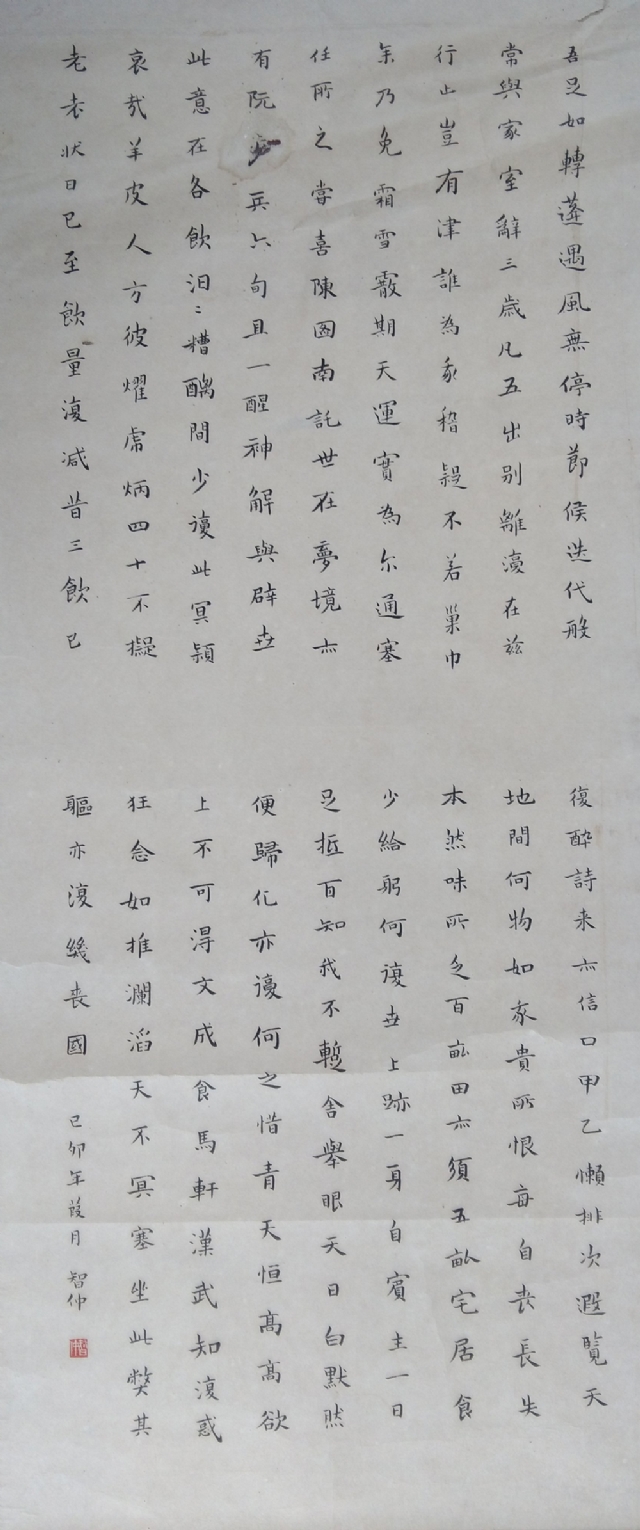 吾足如轉蓬遇風無停時節候迭代般
常與家室辭三歲凡五出别離復在兹
行止豈有津誰為家稽疑不若巢巾
年乃免霜雪霰期天運實為尔通塞
任所之當喜陳國南託世在夢境亦
有阮步兵六旬且一醒神解與辟世
此意在各飲汩汩糟醨間少復此冥穎
哀哉羊皮人方彼耀虎炳四十不擬
老老状日已至飲量復减昔三飲已
復醉詩来亦信口甲乙懶排次遐覽天
地間何物如家貴所恨每自喪長失
本然味所乏百畝田亦須五畝宅居食
少給躬何復世上跡一身自賓主一日
足抵百知我不蹔舍舉眼天日白默然
便歸化亦復何之惜青天恒高高欲
上不可得文成食馬軒漢武知復惑
狂念如推瀾滔天不冥塞坐此獘其
軀亦復幾喪國
己卯年葭月 智仲